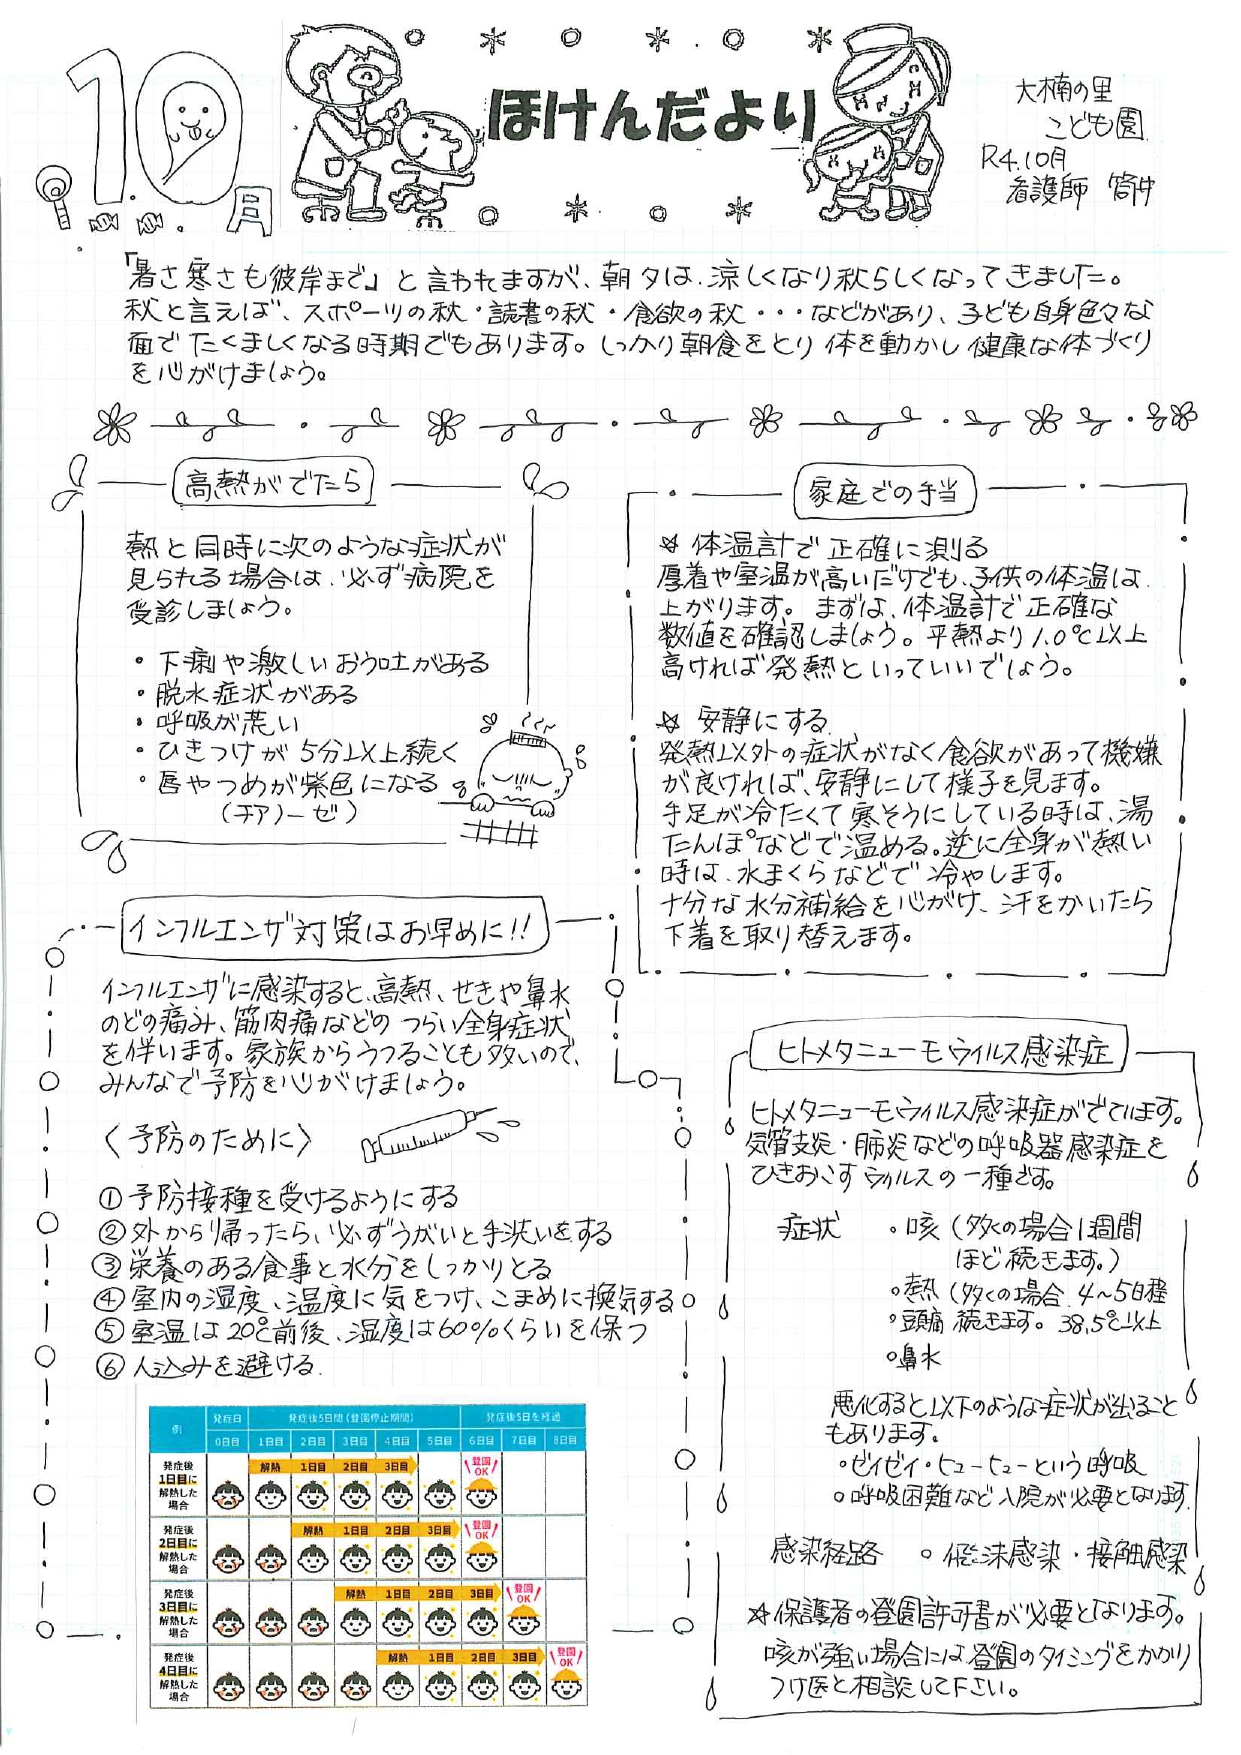 10月
ほけんだより
大楠の里
こども園
R4.10月
看護師 筒井
「暑さ寒さも彼岸まで」と言われますが、朝夕は、涼しくなり秋らしくなってきました。
秋と言えば、スポーツの秋・読書の秋・食欲の秋・・・などがあり、子ども自身色々な
面でたくましくなる時期でもあります。しっかり朝食をとり体を動かし健康な体づくり
を心がけましょう。
高熱がでたら
熱と同時に次のような症状が
見られる場合は、必ず病院を
受診しましょう。
・下痢や激しいおう吐がある
・脱水症状がある
・呼吸が荒い
・ひきつけが5分以上続く
・唇やつめが紫色になる
(チアノーゼ)
家庭での手当
☆ 体温計で正確に測る
厚着や室温が高いだけでも、子供の体温は、
上がります。まずは、体温計で正確な
数値を確認しましょう。平熱より1.0℃以上
高ければ発熱といっていいでしょう。
☆ 安静にする
発熱以外の症状がなく食欲があって機嫌
が良ければ、安静にして様子を見ます。
手足が冷たくて寒そうにしている時は、湯
たんぽなどで温める。逆に全身が熱い
時は、水まくらなどで冷やします。
十分な水分補給を心がけ、汗をかいたら
下着を取り替えます。
インフルエンザ対策はお早めに!!
インフルエンザに感染すると、高熱、せきや鼻水
のどの痛み、筋肉痛などのつらい全身症状
を伴います。家族からうつることも多いので、
みんなで予防を心がけましょう。
〈予防のために〉
①予防接種を受けるようにする
②外から帰ったら、必ずうがいと手洗いをする
③栄養のある食事と水分をしっかりとる
④室内の湿度、温度に気をつけ、こまめに換気する
⑤室温は20℃前後、湿度は60%くらいを保つ
⑥人込みを避ける
例 発症日 発症後5日間(登園停止期間) 発症後5日を経過
0日目 1日目 2日目 3日目 4日目 5日目 6日目 7日目 8日目
発症後
1日目に
解熱した
場合
解熱 1日目 2日目 3日目 登園OK
発症後
2日目に
解熱した
場合
解熱 1日目 2日目 3日目 登園OK
発症後
3日目に
解熱した
場合
解熱 1日目 2日目 3日目 登園OK
発症後
4日目に
解熱した
場合
解熱 1日目 2日目 3日目 登園OK
ヒトメタニューモウィルス感染症
ヒトメタニューモウィルス感染症がでています。
気管支炎・肺炎などの呼吸器感染症を
ひきおこすウィルスの一種です。
症状 。咳(多くの場合1週間
ほど続きます。)
。熱(多くの場合、4~5日程
。頭痛 続きます。38.5℃以上
。鼻水
悪化すると以下のような症状が出ること
もあります。
。ゼイゼイ・ヒューヒューという呼吸
。呼吸困難など入院が必要となります。
感染経路 。飛沫感染・接触感染
☆保護者の登園許可書が必要となります。
咳が強い場合には、登園のタイミングをかかり
つけ医と相談して下さい。